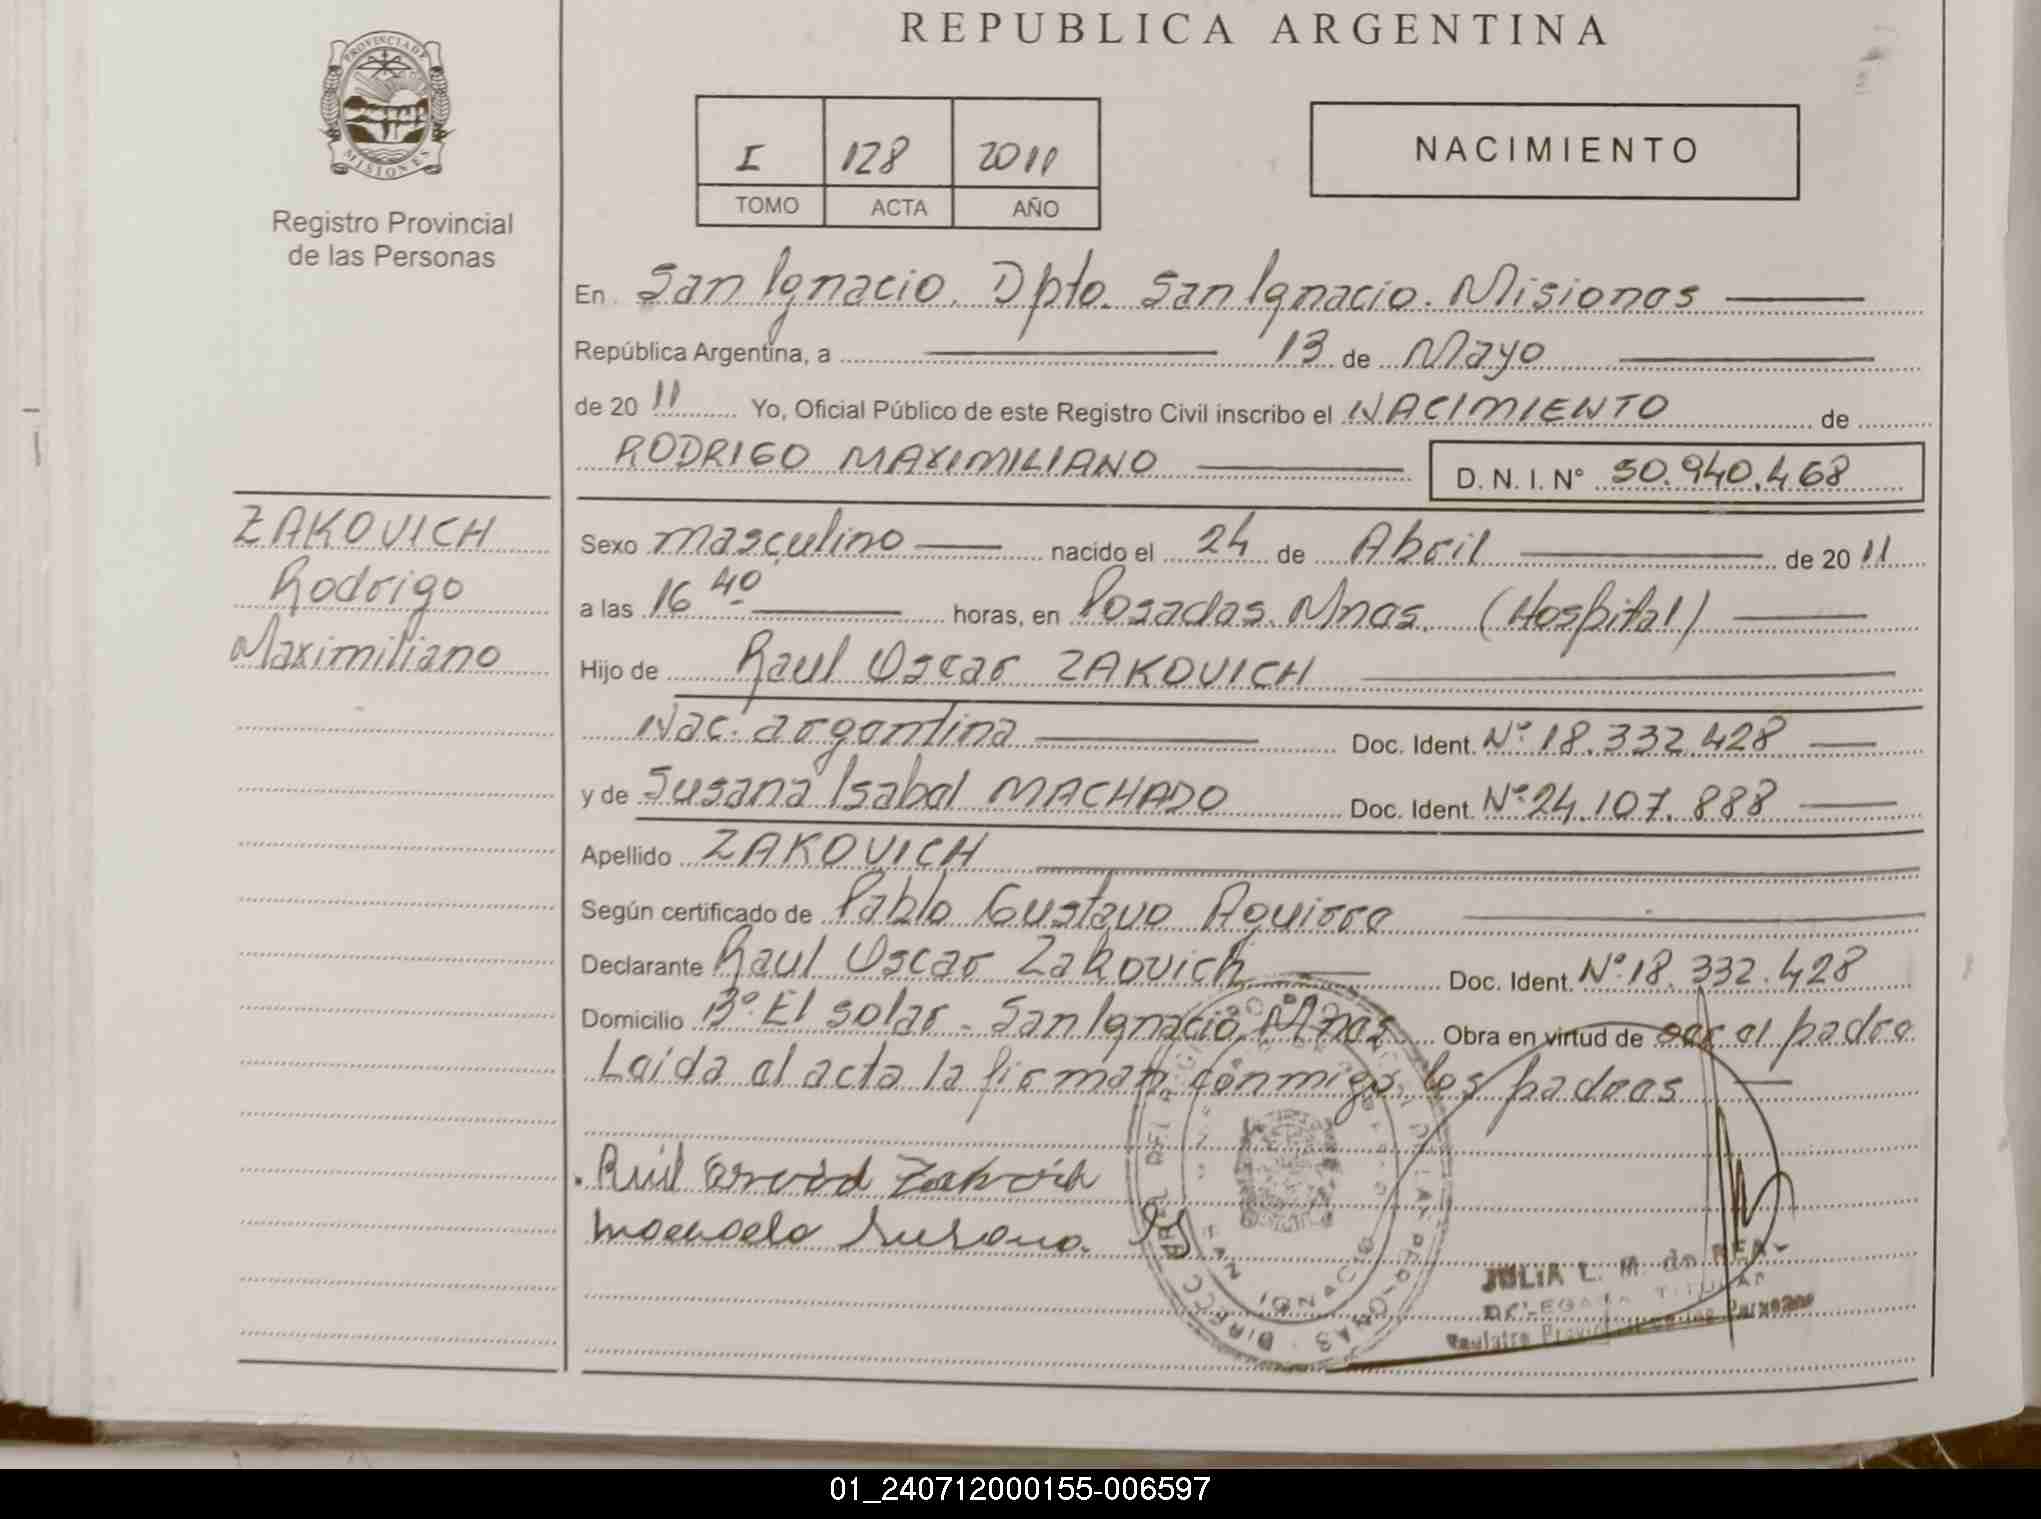 REPUBLICA ARGENTINA
PROVINCIA DE
MISIONES
Registro Provincial
de las Personas
I 128 2011
TOMO ACTA AÑO
NACIMIENTO
En San Ignacio. Dpto. San Ignacio. Misiones
República Argentina, a 13 de Mayo
de 20 11 Yo, Oficial Público de este Registro Civil inscribo el NACIMIENTO de
RODRIGO MAXIMILIANO D. N. I. N° 50.940.468
ZAKOVICH
Rodrigo
Maximiliano
Sexo masculino nacido el 24 de Abril de 20 11
a las 16 40 horas, en Posadas. Mnes. (Hospital)
Hijo de Raul Oscar ZAKOVICH
Nac. argentina Doc. Ident. N° 18.332.428
y de Susana Isabel MACHADO Doc. Ident. N° 24.107.888
Apellido ZAKOVICH
Según certificado de Pablo Gustavo Aguirre
Declarante Raul Oscar Zakovich Doc. Ident. N° 18.332.428
Domicilio B° El solar - San Ignacio Mnes Obra en virtud de ser el padre
Leída el acta la firman conmigo los padres
JULIA L. M. de
Registro Provincial de las Personas
01_240712000155-006597